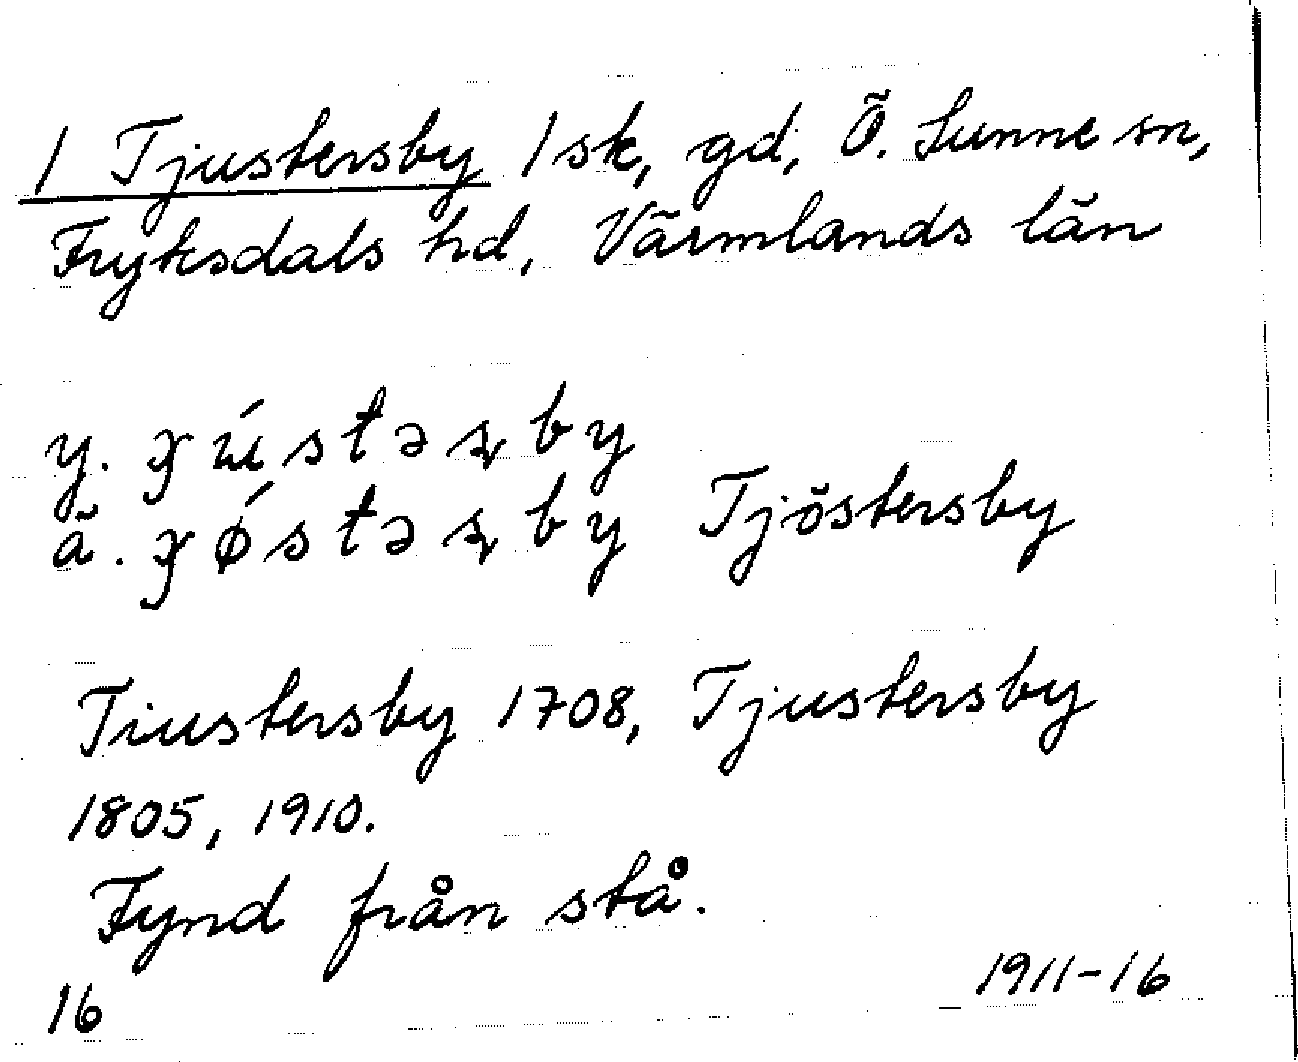 1 Tjustersby 1 sk, gd, Ö. Sunne sn,
Fryksdals hd, Värmlands län
y. ꭓɯ́stəʂby
ä. ꭓǿstəʂby Tjöstersby
Tiustersby 1708, Tjustersby
1805, 1910.
Fynd från stå.
16 1911-16